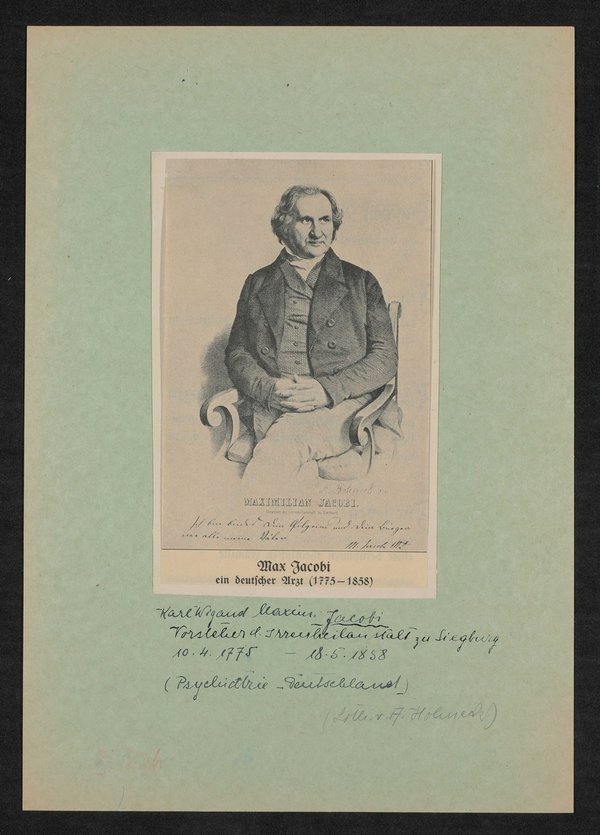 MAXIMILIAN JACOBI.
und
M. Jacobi
Max Jacobi
ein deutscher Arzt (1775—1858)
Karl Wigand Maxim. Jacobi
Vorsteher d. Irrenheilanstalt zu Siegburg
10.4.1775 – 18.5.1858
(Psychiatrie – Deutschland)
(Lith. v. A. Hohneck)